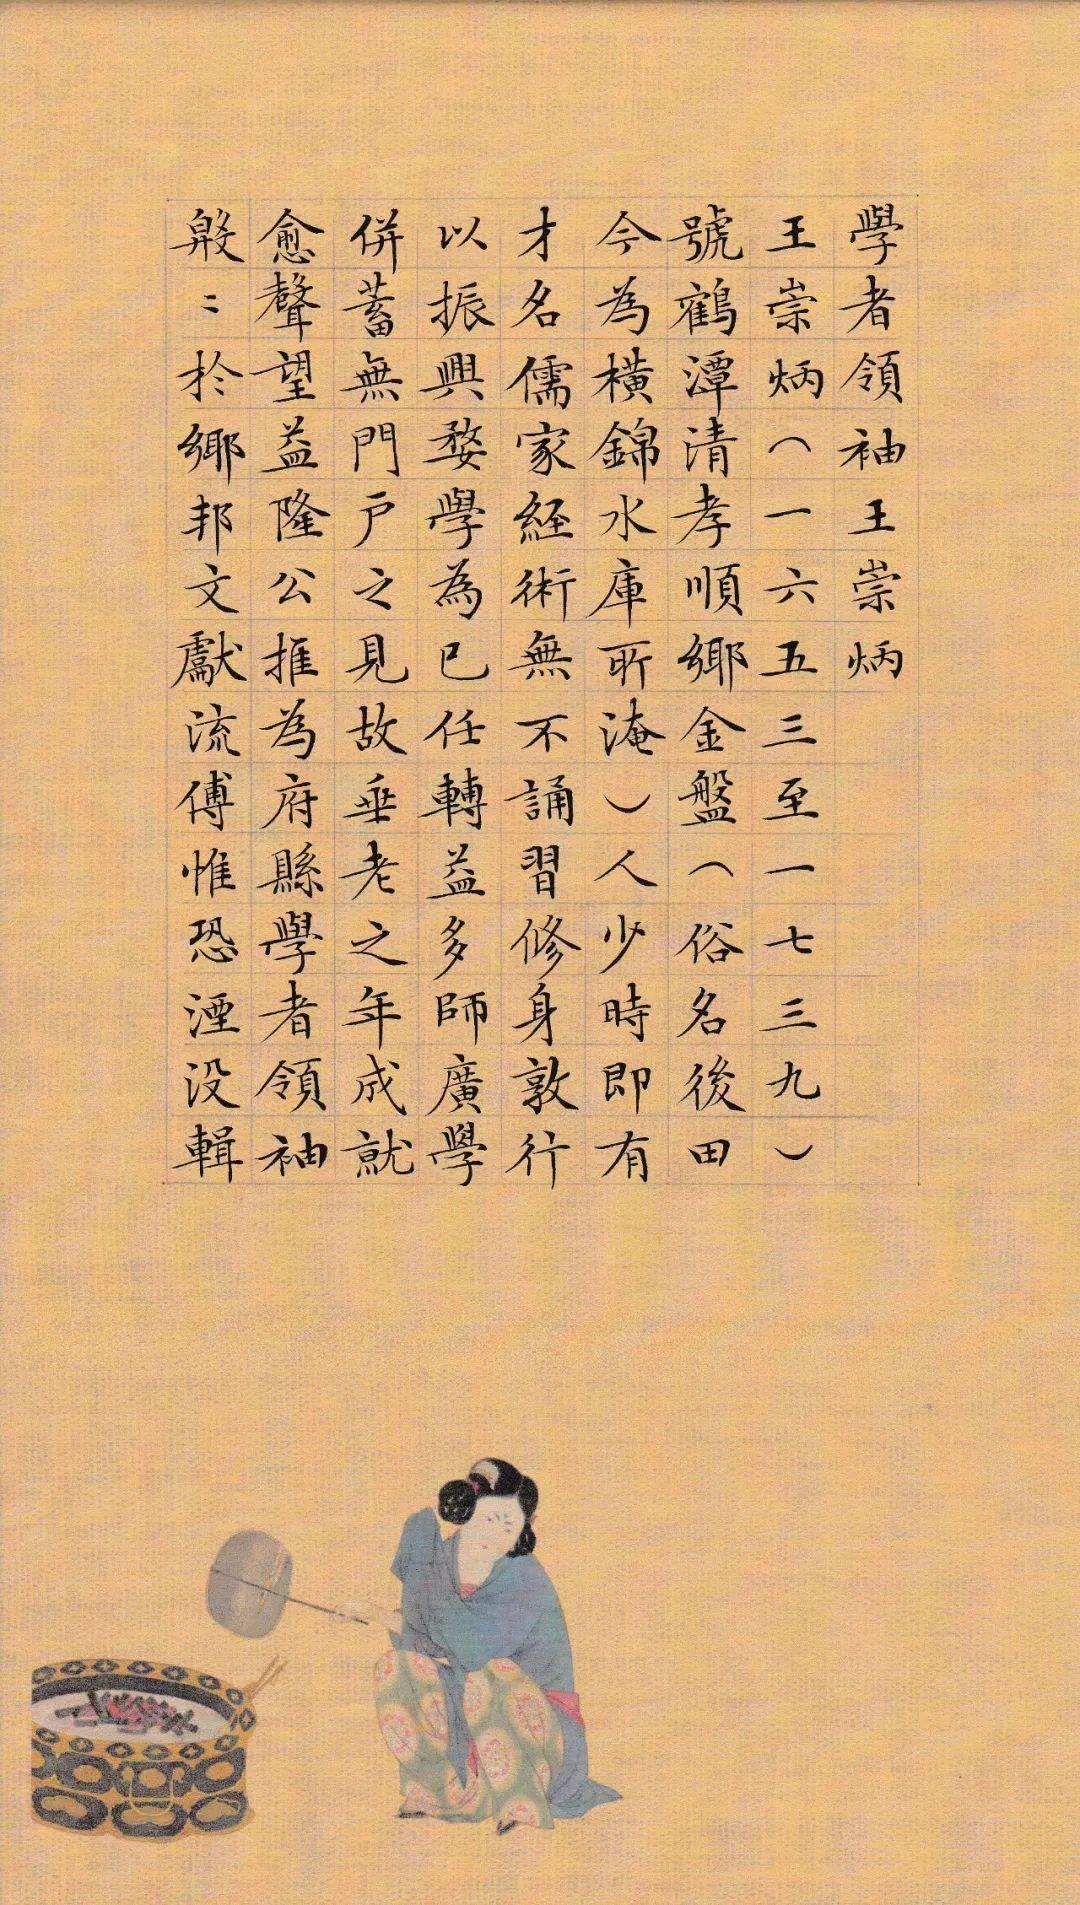 學者領袖王崇炳
王崇炳（一六五三至一七三九）
號鶴潭清孝順鄉金盤（俗名後田
今為橫錦水庫所淹）人少時即有
才名儒家經術無不誦習修身敦行
以振興婺學為己任轉益多師廣學
併蓄無門戶之見故垂老之年成就
愈聲望益隆公推為府縣學者領袖
㲄〻於鄉邦文獻流傳惟恐湮没輯